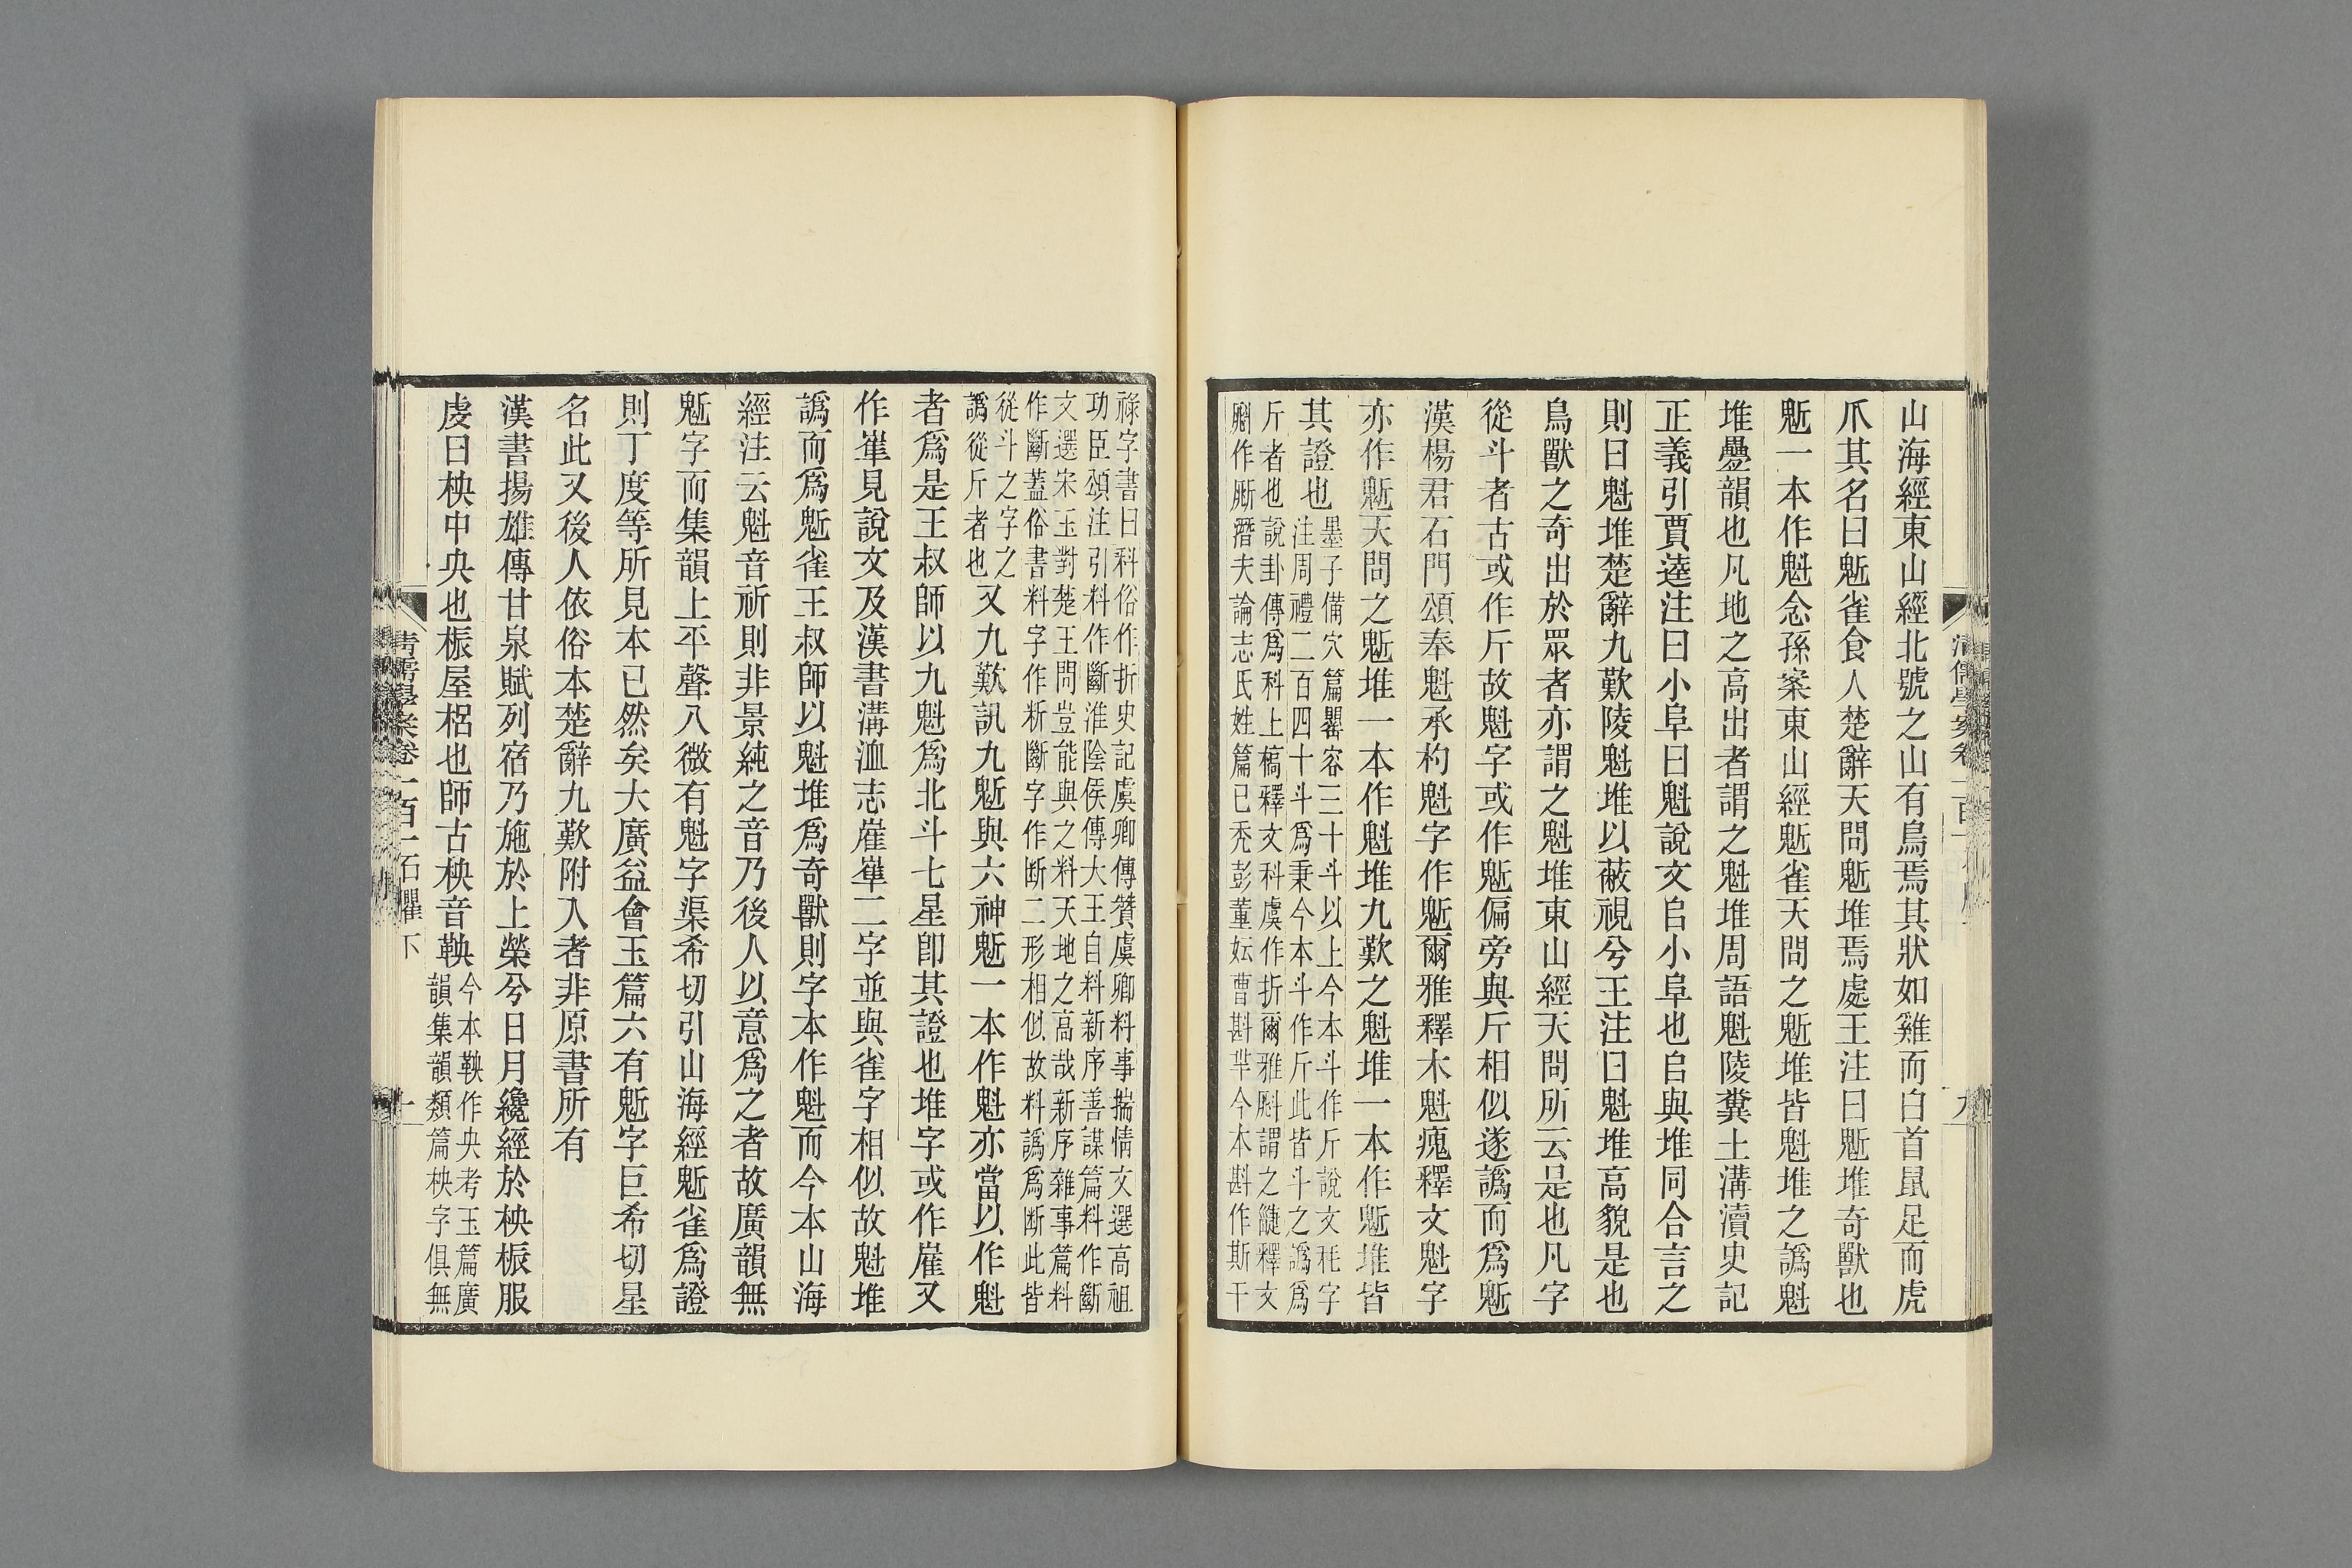 山海經東山經北號之山有鳥焉其狀如雞而白首鼠足而虎
爪其名曰鬿雀食人楚辭天問鬿堆焉處王注曰鬿堆奇獸也
鬿一本作魁念孫案東山經鬿雀天問之鬿堆皆魁堆之譌魁
堆疊韻也凡地之高出者謂之魁堆周語魁陵糞土溝瀆史記
正義引賈逵注曰小阜曰魁說文𠂤小阜也𠂤與堆同合言之
則曰魁堆楚辭九歎陵魁堆以蔽視兮王注曰魁堆高貌是也
鳥獸之奇出於眾者亦謂之魁堆東山經天問所云是也凡字
從斗者古或作斤故魁字或作鬿偏旁與斤相似遂譌而爲鬿
漢楊君石門頌奉魁承杓魁字作鬿爾雅釋木魁瘣釋文魁字
亦作鬿天問之鬿堆一本作魁堆九歎之魁堆一本作鬿堆皆
其證也
墨子備穴篇罌容三十斗以上今本斗作斤說文秏字
注周禮二百四十斗爲秉今本斗作斤此皆斗之譌爲
斤者也說卦傳爲科上槁釋文科虞作折爾雅斪謂之𪃨釋文
斸作斪潛夫論志氏姓篇已禿彭董妘曹斟羋今本斟作斯干
祿字書曰科俗作折史記虞卿傳贊虞卿料事揣情文選高祖
功臣頌注引料作斷淮陰侯傳大王自料新序善謀篇料作斷
文選宋玉對楚王問豈能與之料天地之高哉新序雜事篇料
作斷蓋俗書料字作断斷字作断二形相似故料譌爲断此皆
從斗之字之
譌從斤者也
又九歎訊九鬿與六神鬿一本作魁亦當以作魁
者爲是王叔師以九魁爲北斗七星卽其證也堆字或作崔又
作嶊見說文及漢書溝洫志崔嶊二字並與雀字相似故魁堆
譌而爲鬿雀王叔師以魁堆爲奇獸則字本作魁而今本山海
經注云魁音祈則非景純之音乃後人以意爲之者故廣韻無
鬿字而集韻上平聲八微有魁字渠希切引山海經鬿雀爲證
則丁度等所見本已然矣大廣益會玉篇六有鬿字巨希切星
名此又後人依俗本楚辭九歎附入者非原書所有
漢書揚雄傳甘泉賦列宿乃施於上榮兮日月纔經於柍桭服
虔曰柍中央也桭屋梠也師古柍音鞅
今本鞅作央考玉篇廣
韻集韻類篇柍字俱無